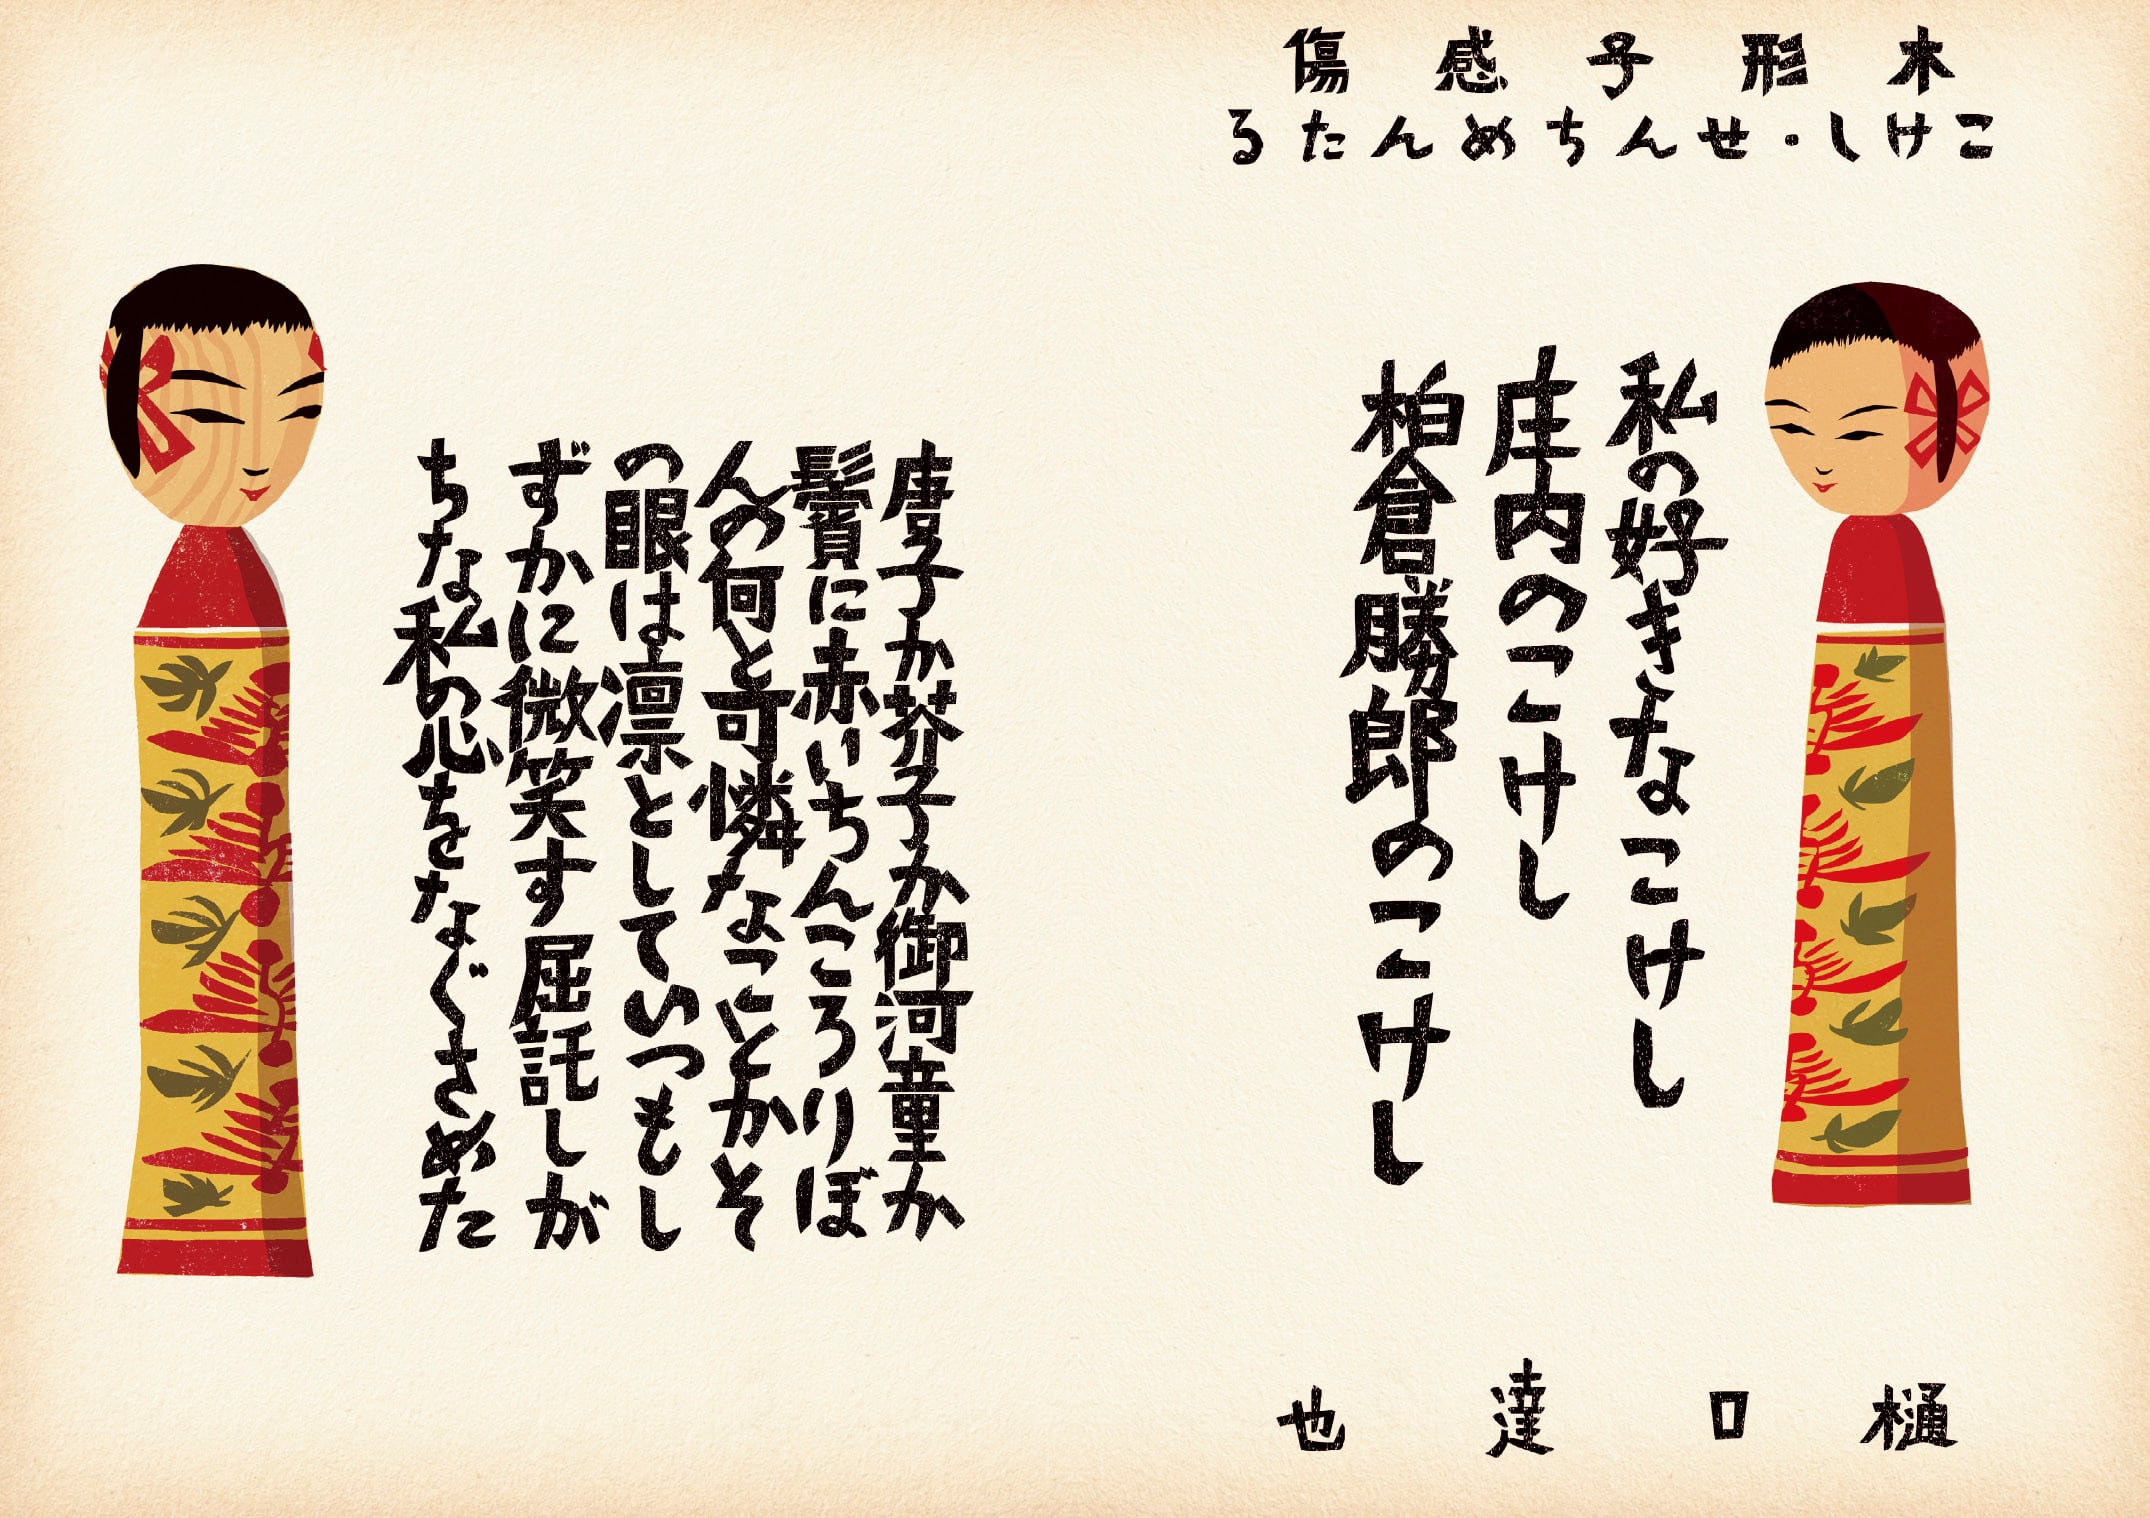 木形子感傷
こけし・せんちめんたる
私の好きなこけし
庄内のこけし
柏倉勝郎のこけし
唐子か芥子か御河童か
鬢に赤いちんころりぼ
んの何と可憐なことかそ
の眼は凛としていつもし
ずかに微笑す屈託しが
ちな私の心をなぐさめた
樋口達也